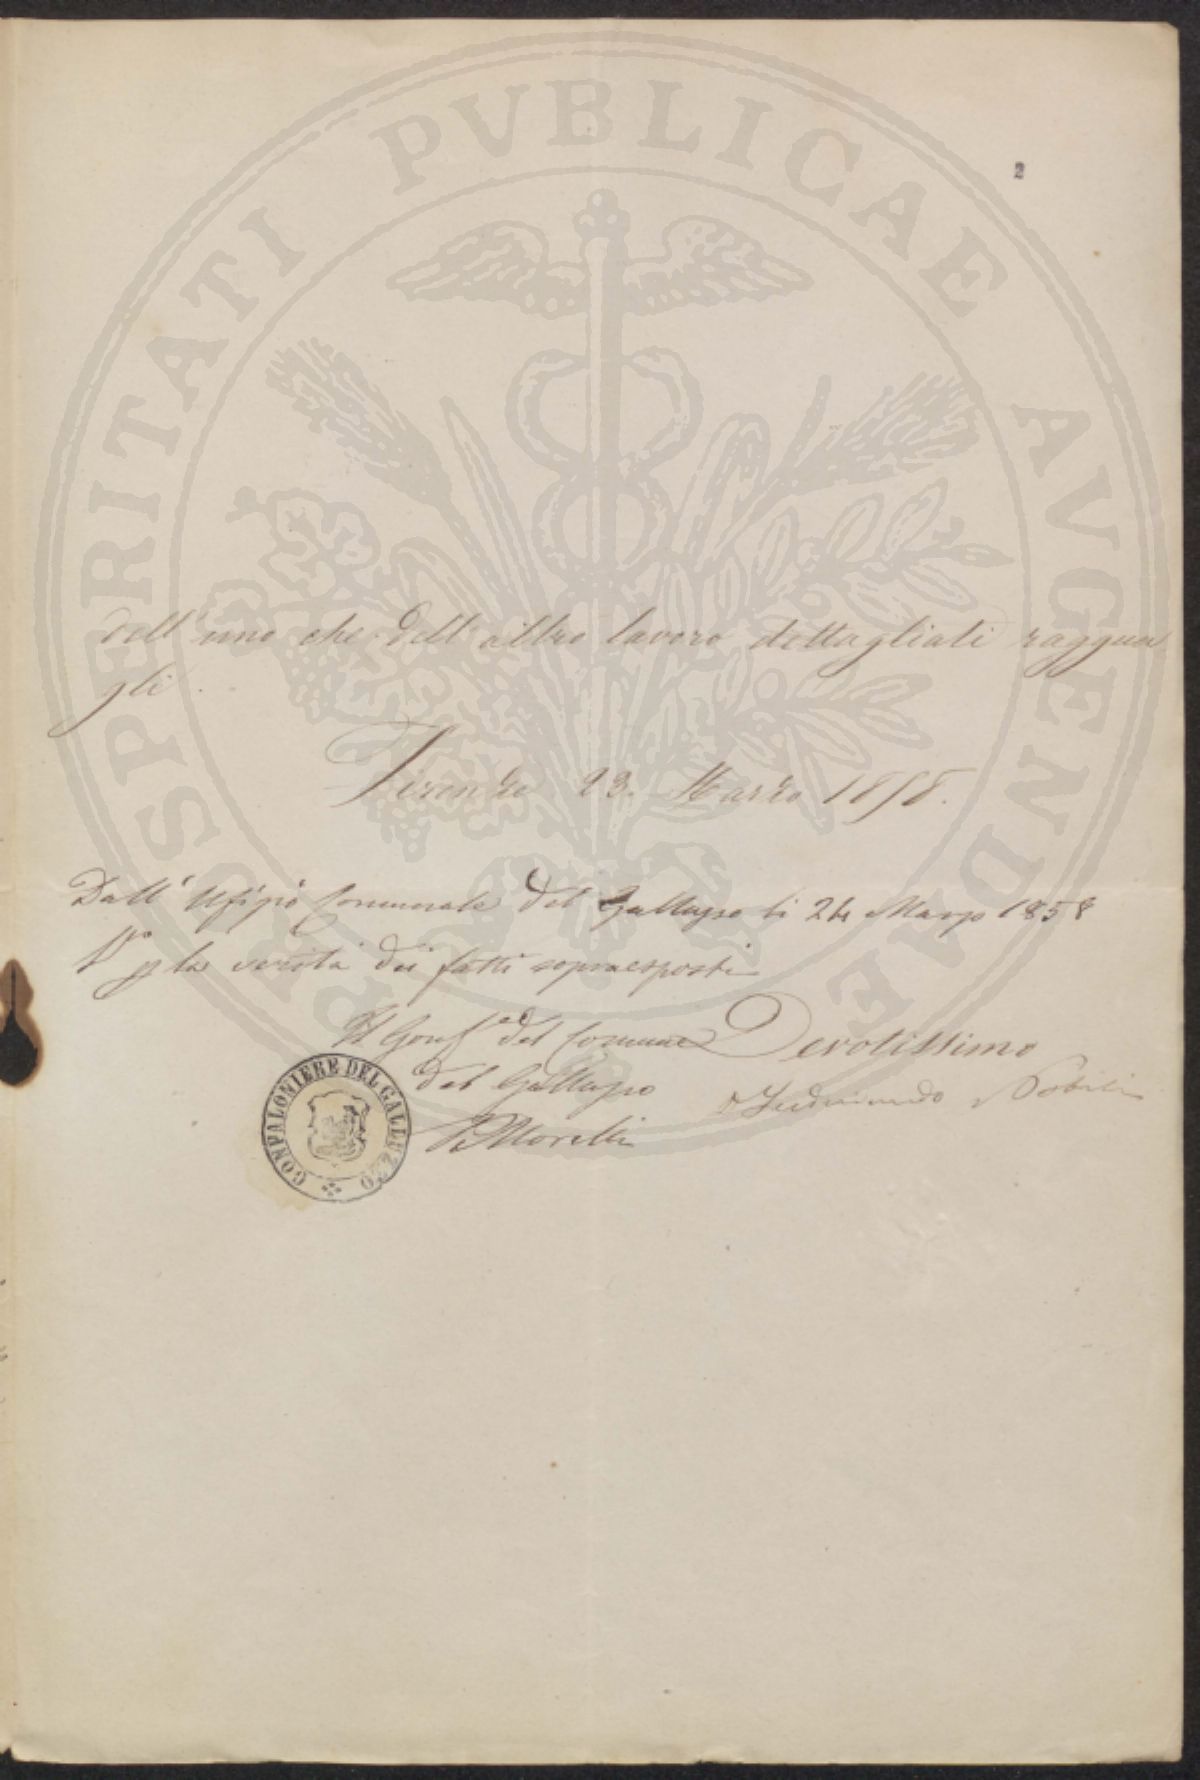 PROSPERITATI PUBLICAE AVGENDAE
2
dell'uno che dell'altro lavoro dettagliati raggua
gli.
Firenze 23. Marzo 1858.
Dall' Ufizio Comunale del Galluzzo li 24 Marzo 1858
Vo p la verità dei fatti sopraesposti
Il Gonfre del Comune
del Galluzzo
Morelli
Devotissimo
Ferdinando Nobili
GONFALONIERE DEL GALLUZZO